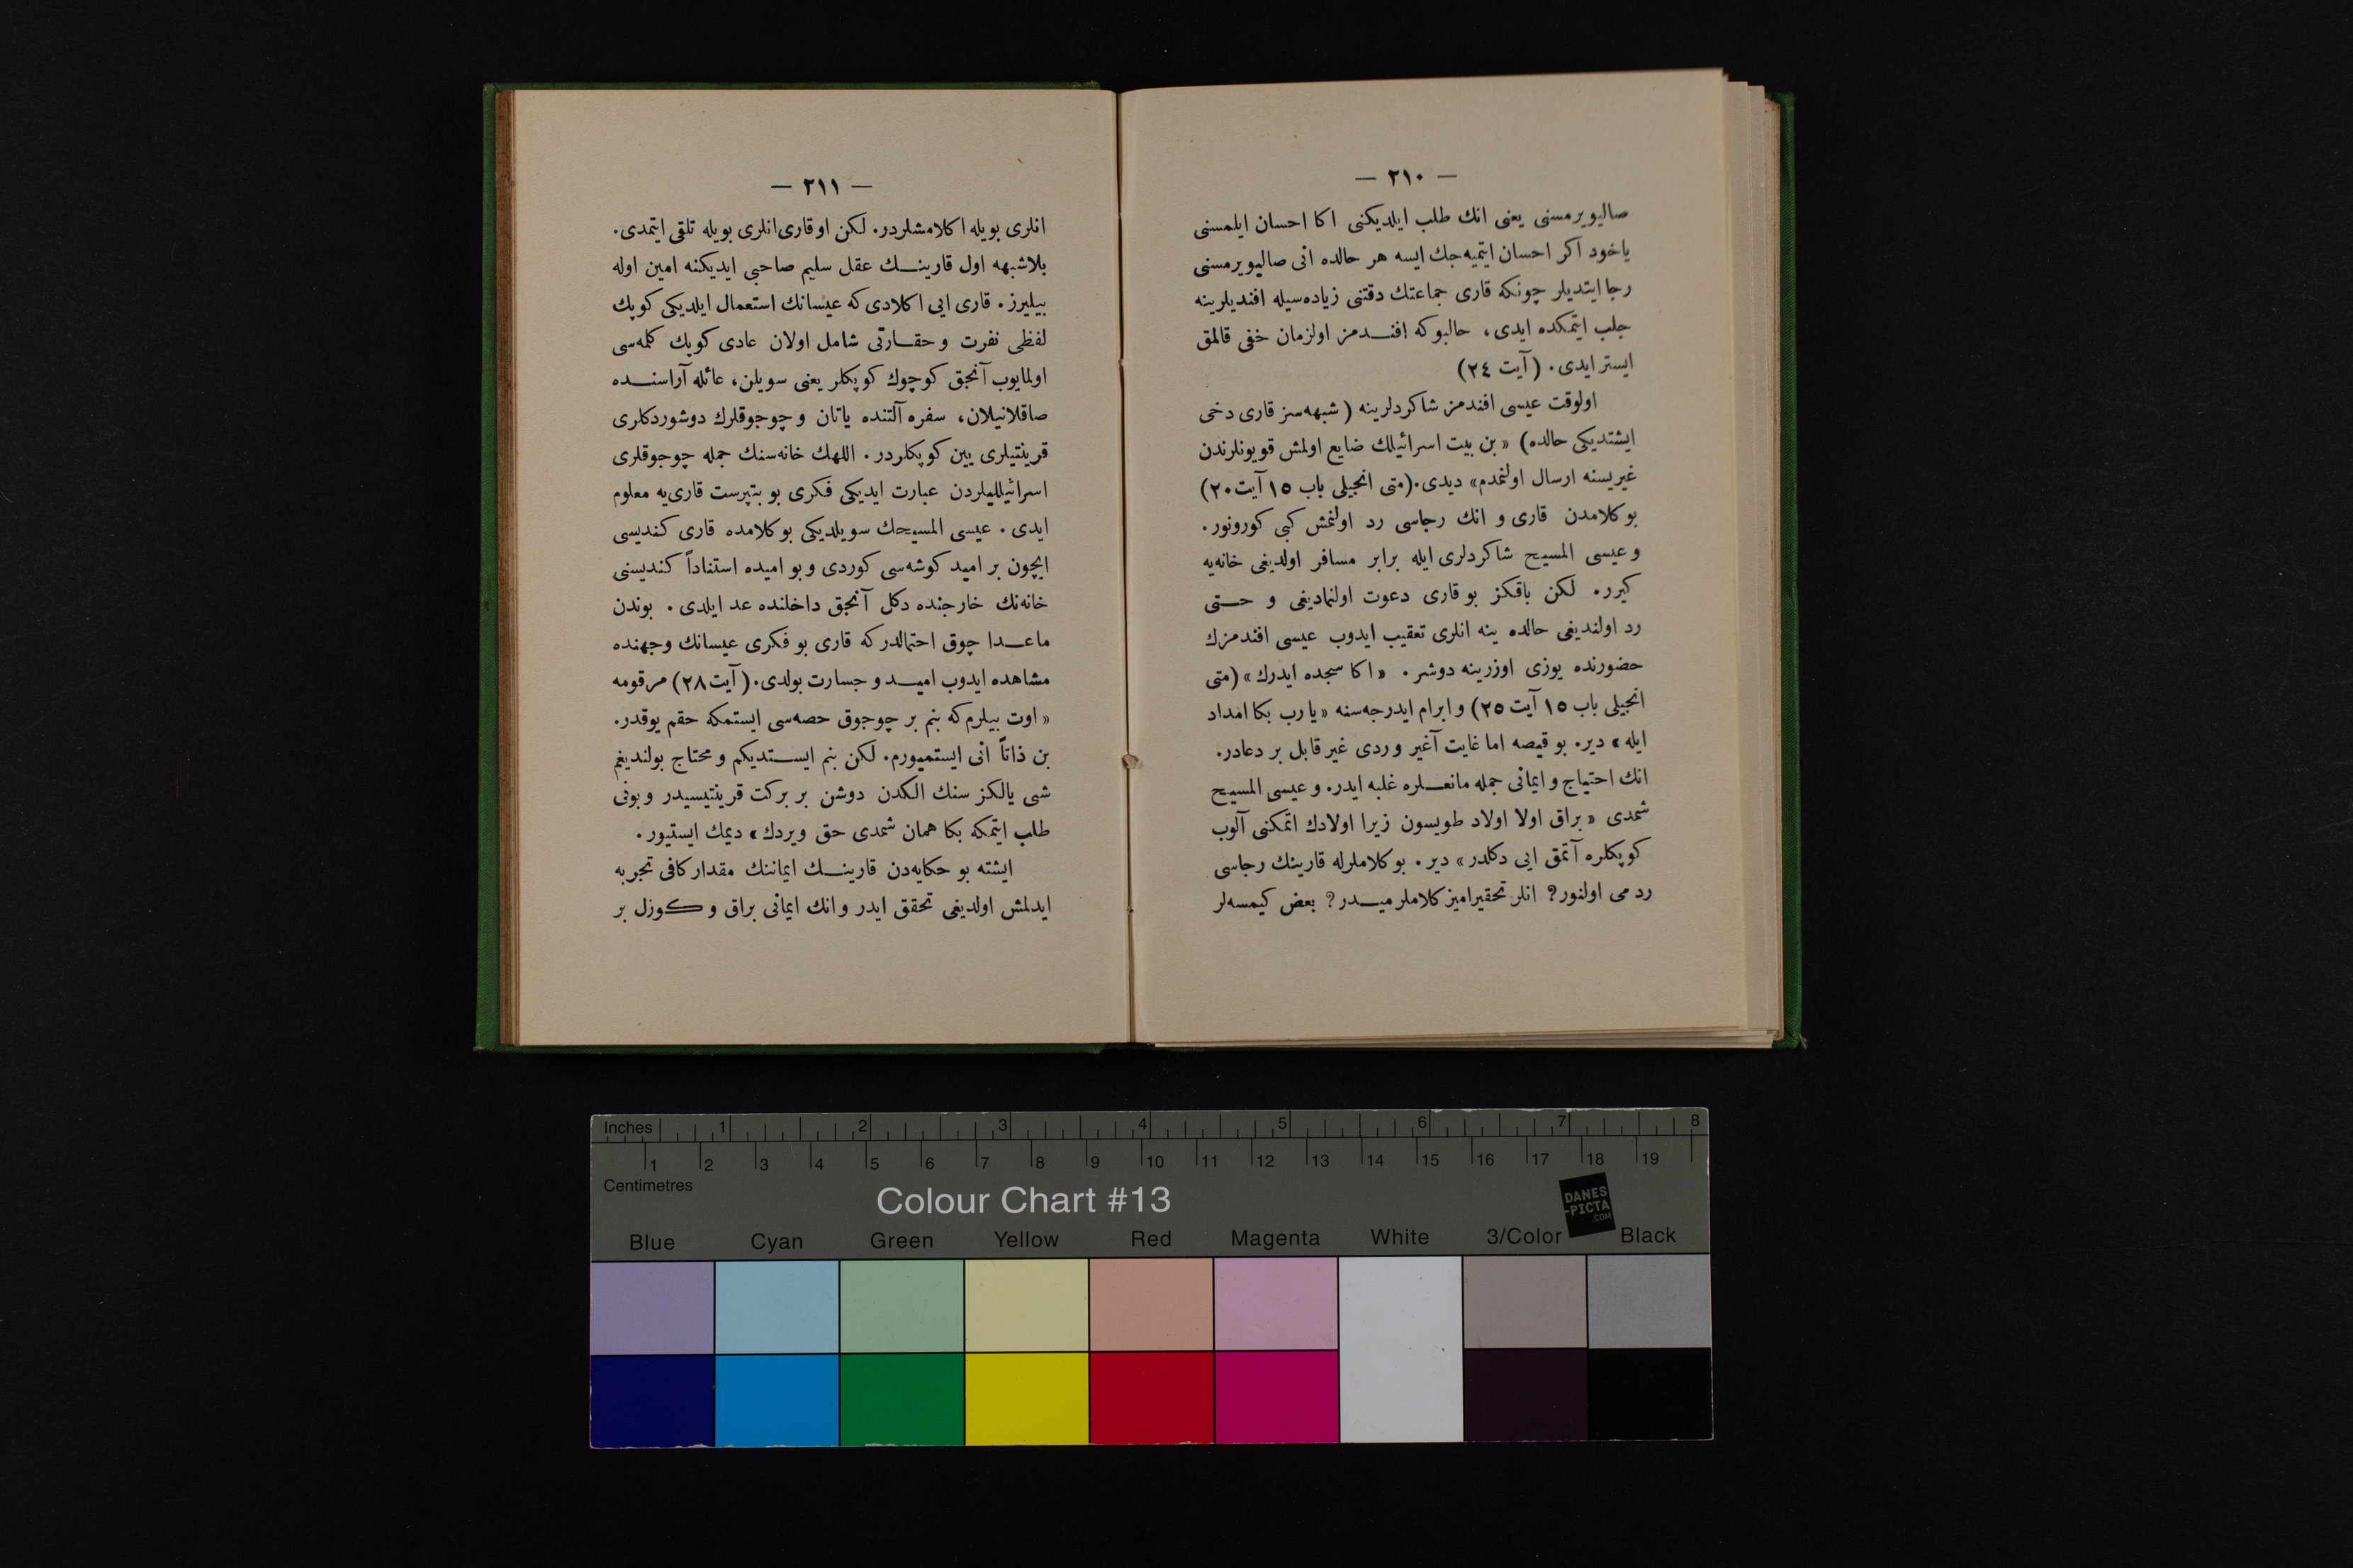 — ٢١٠ —
صاليويرمسنی يعنی انك طلب ايلديكنی اكا احسان ايلمسنی
ياخود اكر احسان ايتميه‌جك ايسه هر حالده انی صاليويرمسنی
رجا ايتديلر چونكه قاری جماعتك دقتنی زياده‌سيله افنديلرينه
جلب ايتمكده ايدی، حالبوكه افندمز اولزمان خفی قالمق
ايستر ايدی. (آيت ٢٤)
اولوقت عيسی افندمز شاكردلرينه (شبهه‌سز قاری دخی
ايشتديكی حالده) «بن بيت اسرائيلك ضايع اولمش قويونلرندن
غيريسنه ارسال اولنمدم» ديدی.(متی انجيلی باب ١٥ آيت٢٠)
بو كلامدن قاری و انك رجاسی رد اولنمش كبی كورونور.
و عيسی المسيح شاكردلری ايله برابر مسافر اولديغی خانه‌يه
كيرر. لكن باقكز بو قاری دعوت اولنماديغی و حتی
رد اولنديغی حالده ينه انلری تعقيب ايدوب عيسی افندمزك
حضورنده يوزی اوزرينه دوشر. «اكا سجده ايدرك» (متی
انجيلی باب ١٥ آيت ٢٥) و ابرام ايدرجه‌سنه «يا رب بكا امداد
ايله» دير. بو قيصه اما غايت آغير و ردی غير قابل بر دعادر.
انك احتياج و ايمانی جمله مانعلره غلبه ايدر. و عيسی المسيح
شمدی «براق اولا اولاد طويسون زيرا اولادك اتمكنی آلوب
كوپكلره آتمق ايی دكلدر» دير. بو كلاملرله قارينك رجاسی
رد می اولنور؟ انلر تحقيراميز كلاملر ميدر؟ بعض كيمسه‌لر
— ٢١١ —
انلری بويله اكلامشلردر. لكن او قاری انلری بويله تلقی ايتمدی.
بلاشبهه اول قارينك عقل سليم صاحبی ايديكنه امين اوله
بيليرز. قاری ايی اكلادی كه عيسانك استعمال ايلديكی كوپك
لفظی نفرت و حقارتی شامل اولان عادی كوپك كلمه‌سی
اولمايوب آنجق كوچوك كوپكلر يعنی سويلن، عائله آراسنده
صاقلانيلان، سفره آلتنده ياتان و چوجوقلرك دوشوردكلری
قرينتيلری يين كوپكلردر. اللهك خانه‌سنك جمله چوجوقلری
اسرائيلليلردن عبارت ايديكی فكری بو بتپرست قاری‌يه معلوم
ايدی. عيسی المسيحك سويلديكی بو كلامده قاری كنديسی
ايچون بر اميد كوشه‌سی كوردی و بو اميده استناداً كنديسنی
خانه‌نك خارجنده دكل آنجق داخلنده عد ايلدی. بوندن
ماعدا چوق احتمالدر كه قاری بو فكری عيسانك وجهنده
مشاهده ايدوب اميد و جسارت بولدی.(آيت٢٨) مرقومه
«اوت بيلرم كه بنم بر چوجوق حصه‌سی ايستمكه حقم يوقدر.
بن ذاتاً انی ايستميورم. لكن بنم ايستديكم و محتاج بولنديغم
شی يالكز سنك الكدن دوشن بر بركت قرينتيسيدر و بونی
طلب ايتمكه بكا همان شمدی حق ويردك» ديمك ايستيور.
ايشته بو حكايه‌دن قارينك ايماننك مقدار كافی تجربه
ايدلمش اولديغی تحقق ايدر و انك ايمانی براق و كوزل بر
Inches 1 2 3 4 5 6 7 8
1 2 3 4 5 6 7 8 9 10 11 12 13 14 15 16 17 18 19
Centimetres
Colour Chart #13
DANES
-PICTA
.COM
Blue Cyan Green Yellow Red Magenta White 3/Color Black